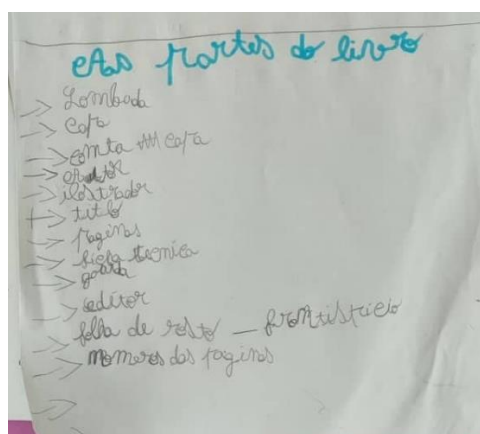 As partes do livro
Lombada
capa
contra capa
autor
ilostrador
titulo
paginas
ficha tecnica
guarda
editor
folha de rosto — frontispicio
nomeros das paginas